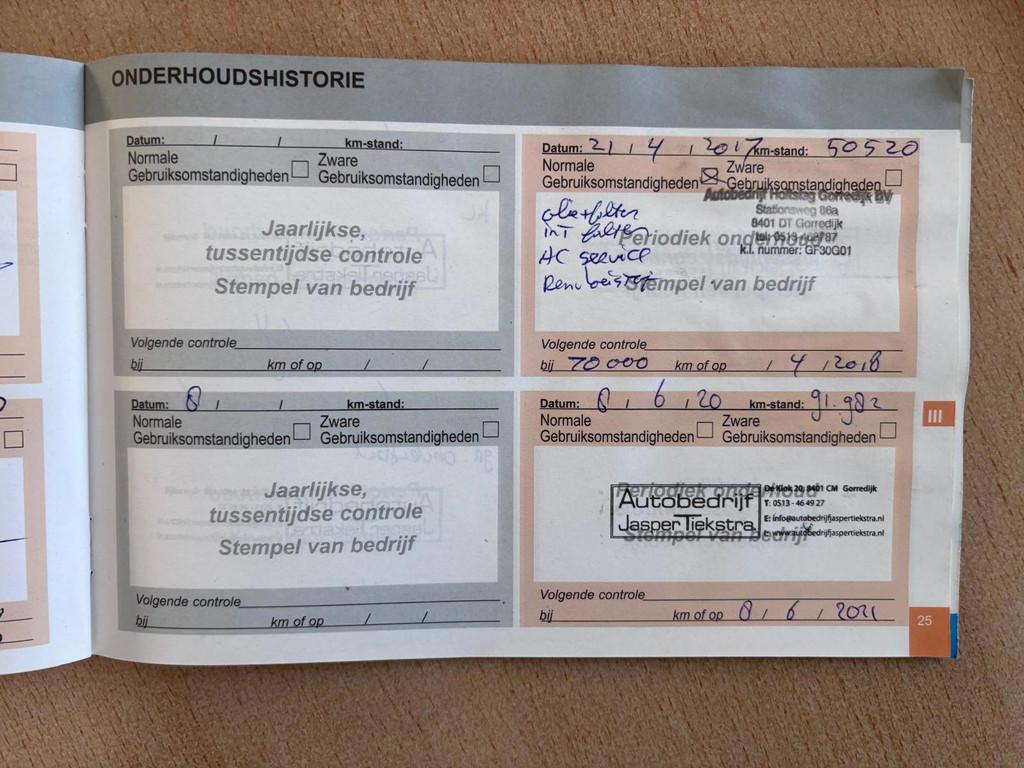 ONDERHOUDSHISTORIE
Datum: / / km-stand:
Normale Gebruiksomstandigheden
Zware Gebruiksomstandigheden
Jaarlijkse,
tussentijdse controle
Stempel van bedrijf
Volgende controle
bij km of op / /
Datum: 21 / 4 / 2017 km-stand: 50520
Normale Gebruiksomstandigheden
Zware Gebruiksomstandigheden
Autobedrijf Holtslag Gorredijk BV
Stationsweg 86a
8401 DT Gorredijk
tel: 0513
k.l. nummer: GF30G01
olie+filter
int filter
AC service
Periodiek onderhoud
Stempel van bedrijf
Volgende controle
bij 70000 km of op / 4 / 2018
Datum: 8 / / km-stand:
Normale Gebruiksomstandigheden
Zware Gebruiksomstandigheden
Jaarlijkse,
tussentijdse controle
Stempel van bedrijf
Volgende controle
bij km of op / /
Datum: 8 / 6 / 20 km-stand: 91.982
Normale Gebruiksomstandigheden
Zware Gebruiksomstandigheden
Periodiek onderhoud
Stempel van bedrijf
Autobedrijf
Jasper Tiekstra
De Klok 20, 8401 CM Gorredijk
T: 0513 - 46 49 27
E: info@autobedrijfjaspertiekstra.nl
I: www.autobedrijfjaspertiekstra.nl
Volgende controle
bij km of op 8 / 6 / 2021
III
25